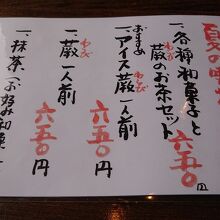 夏の
一、各種和菓子と
蕨のお茶セット
わらび
六五〇円
おすすめ
一、アイス蕨一人前
わらび
六五〇円
一、蕨一人前
わらび
六五〇円
一、抹茶(お好み和菓